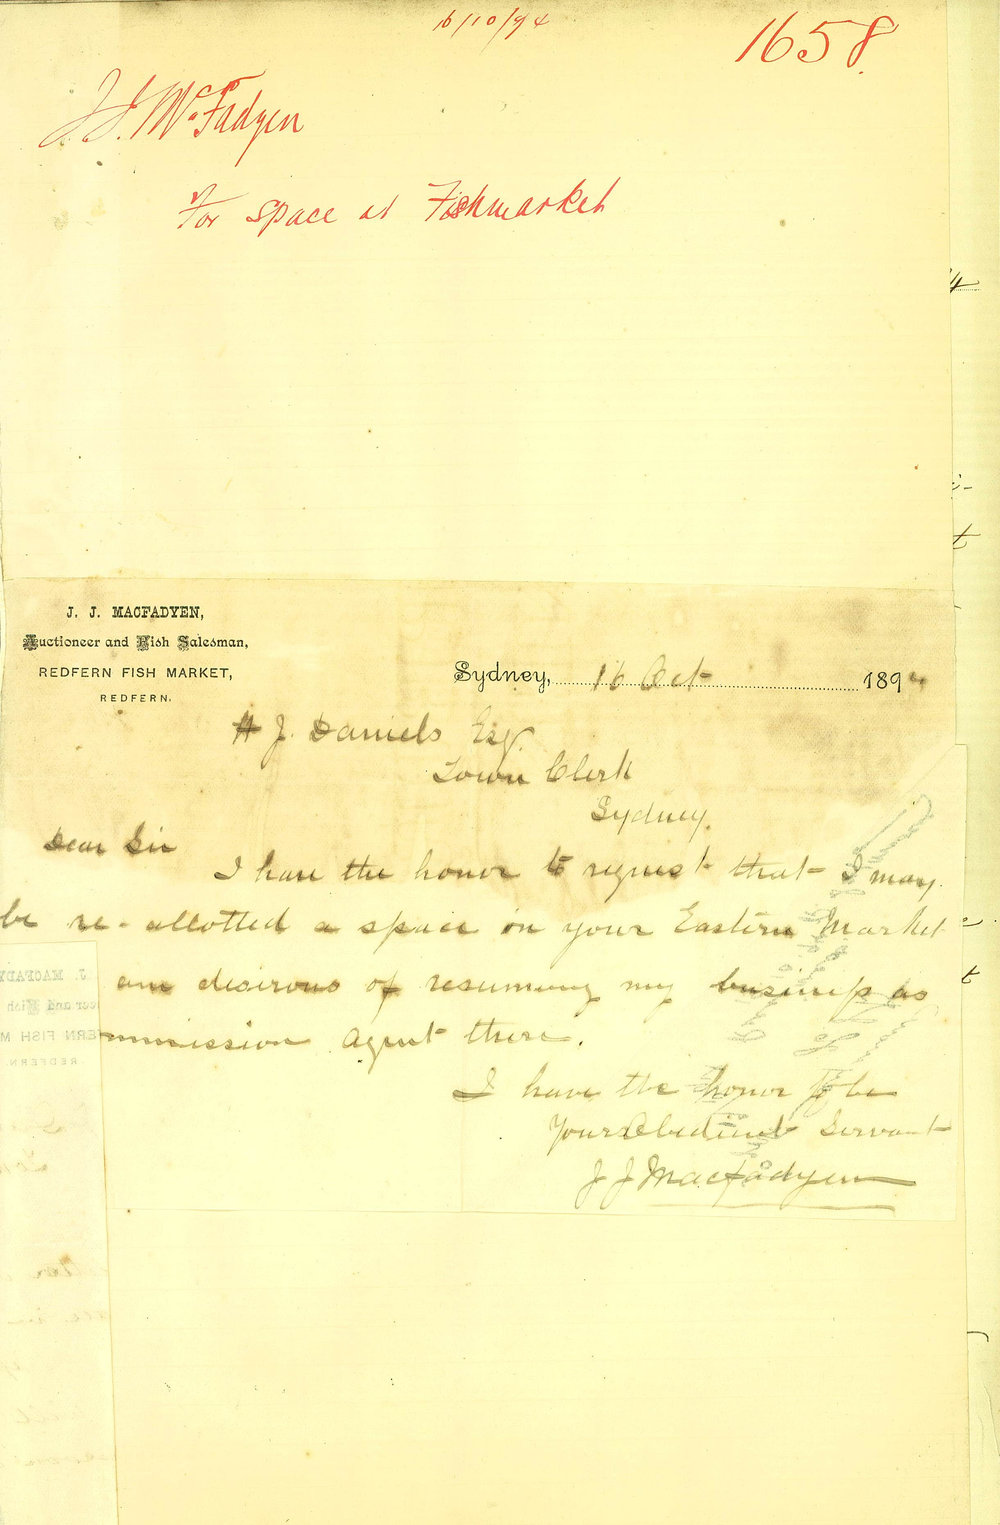 16/10/94
1658.
J. J. McFadyen
For space at Fishmarket
J. J. MACFADYEN,
Auctioneer and Fish Salesman,
REDFERN FISH MARKET,
REDFERN.
Sydney, 16 Oct 1894
H J. Daniels Esq.
Town Clerk
Sydney.
Dear Sir
I have the honor to request that I may
be re-allotted a space in your Eastern Market
am desirous of resuming my business as
mmission agent there.
I have the honor to be
Your Obedient Servant
J J Macfadyen